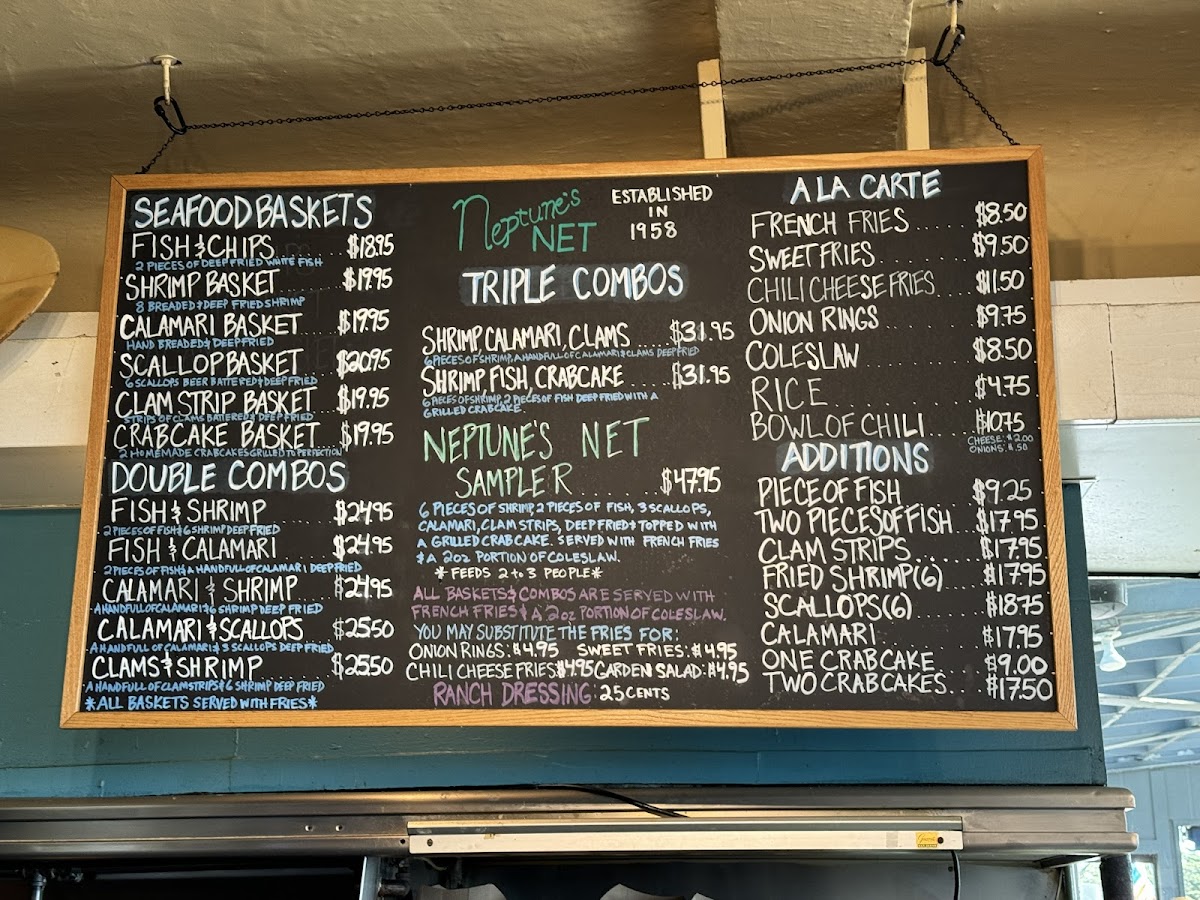 SEAFOOD BASKETS
FISH & CHIPS $18.95
2 PIECES OF DEEP FRIED WHITE FISH
SHRIMP BASKET $19.95
8 BREADED & DEEP FRIED SHRIMP
CALAMARI BASKET $19.95
HAND BREADED & DEEP FRIED
SCALLOP BASKET $20.95
6 SCALLOPS BEER BATTERED & DEEP FRIED
CLAM STRIP BASKET $19.95
STRIPS OF CLAMS BATTERED & DEEP FRIED
CRABCAKE BASKET $19.95
2 HOMEMADE CRABCAKES GRILLED TO PERFECTION
DOUBLE COMBOS
FISH & SHRIMP $24.95
2 PIECES OF FISH & 6 SHRIMP DEEP FRIED
FISH & CALAMARI $24.95
2 PIECES OF FISH & A HANDFUL OF CALAMARI DEEP FRIED
CALAMARI & SHRIMP $24.95
A HANDFUL OF CALAMARI & 6 SHRIMP DEEP FRIED
CALAMARI & SCALLOPS $25.50
A HANDFULL OF CALAMARI & 3 SCALLOPS DEEP FRIED
CLAMS & SHRIMP $25.50
A HANDFULL OF CLAM STRIPS & 6 SHRIMP DEEP FRIED
*ALL BASKETS SERVED WITH FRIES*
Neptune's
NET
ESTABLISHED
IN
1958
TRIPLE COMBOS
SHRIMP, CALAMARI, CLAMS $31.95
6 PIECES OF SHRIMP, A HANDFULL OF CALAMARI & CLAMS DEEP FRIED
SHRIMP, FISH, CRABCAKE $31.95
6 PIECES OF SHRIMP, 2 PIECES OF FISH DEEP FRIED WITH A
GRILLED CRABCAKE
NEPTUNE'S NET
SAMPLER $47.95
6 PIECES OF SHRIMP, 2 PIECES OF FISH, 3 SCALLOPS,
CALAMARI, CLAM STRIPS, DEEP FRIED & TOPPED WITH
A GRILLED CRABCAKE. SERVED WITH FRENCH FRIES
& A 2oz PORTION OF COLESLAW.
*FEEDS 2 to 3 PEOPLE*
ALL BASKETS & COMBOS ARE SERVED WITH
FRENCH FRIES & A 2oz PORTION OF COLESLAW.
YOU MAY SUBSTITUTE THE FRIES FOR:
ONION RINGS: $4.95 SWEET FRIES: $4.95
CHILI CHEESE FRIES: $4.95 GARDEN SALAD: $4.95
RANCH DRESSING: 25 CENTS
A LA CARTE
FRENCH FRIES $8.50
SWEET FRIES $9.50
CHILI CHEESE FRIES $11.50
ONION RINGS $9.75
COLESLAW $8.50
RICE $4.75
BOWL OF CHILI $10.75
CHEESE: $2.00
ONIONS: $.50
ADDITIONS
PIECE OF FISH $9.25
TWO PIECES OF FISH $17.95
CLAM STRIPS $17.95
FRIED SHRIMP (6) $17.95
SCALLOPS (6) $18.75
CALAMARI $17.95
ONE CRABCAKE $9.00
TWO CRABCAKES $17.50